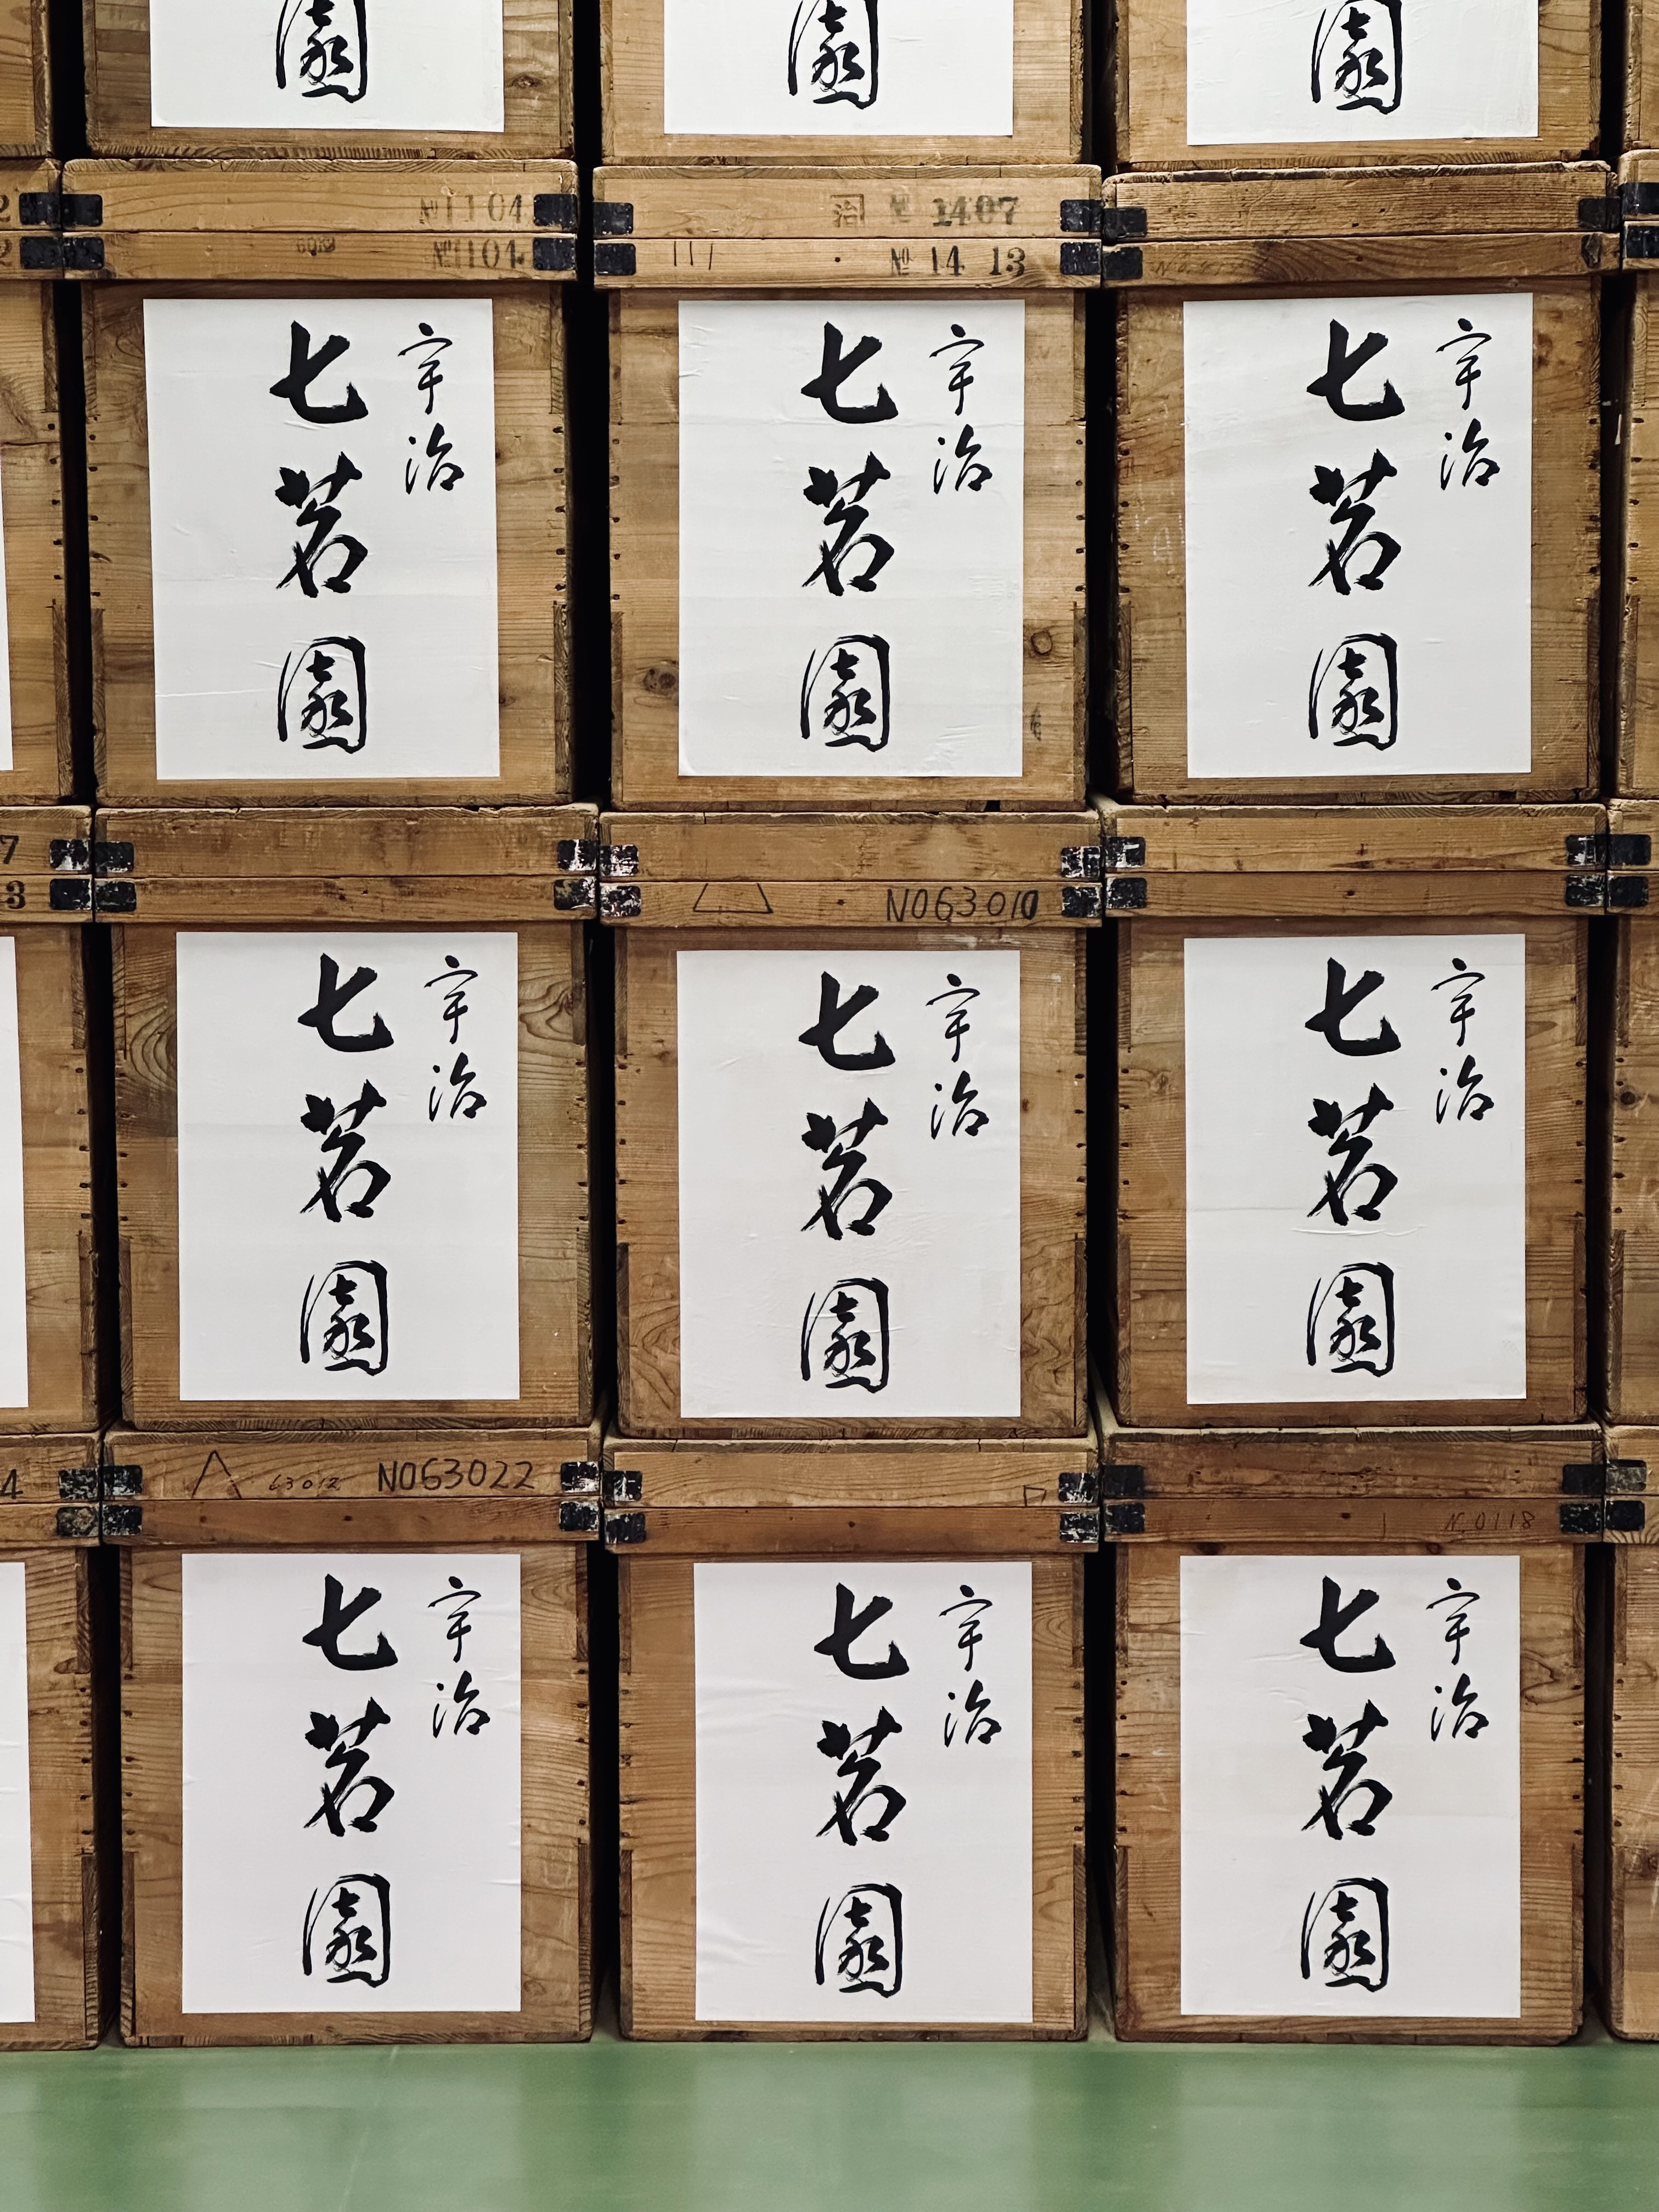 園
園
園
2
2
№1104
№1104
治 № 1407
№ 14 13
宇治
七茗園
宇治
七茗園
宇治
七茗園
7
3
NO63010
宇治
七茗園
宇治
七茗園
宇治
七茗園
4
63012 NO63022
N.0118
宇治
七茗園
宇治
七茗園
宇治
七茗園